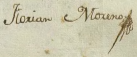 Florian Moreno